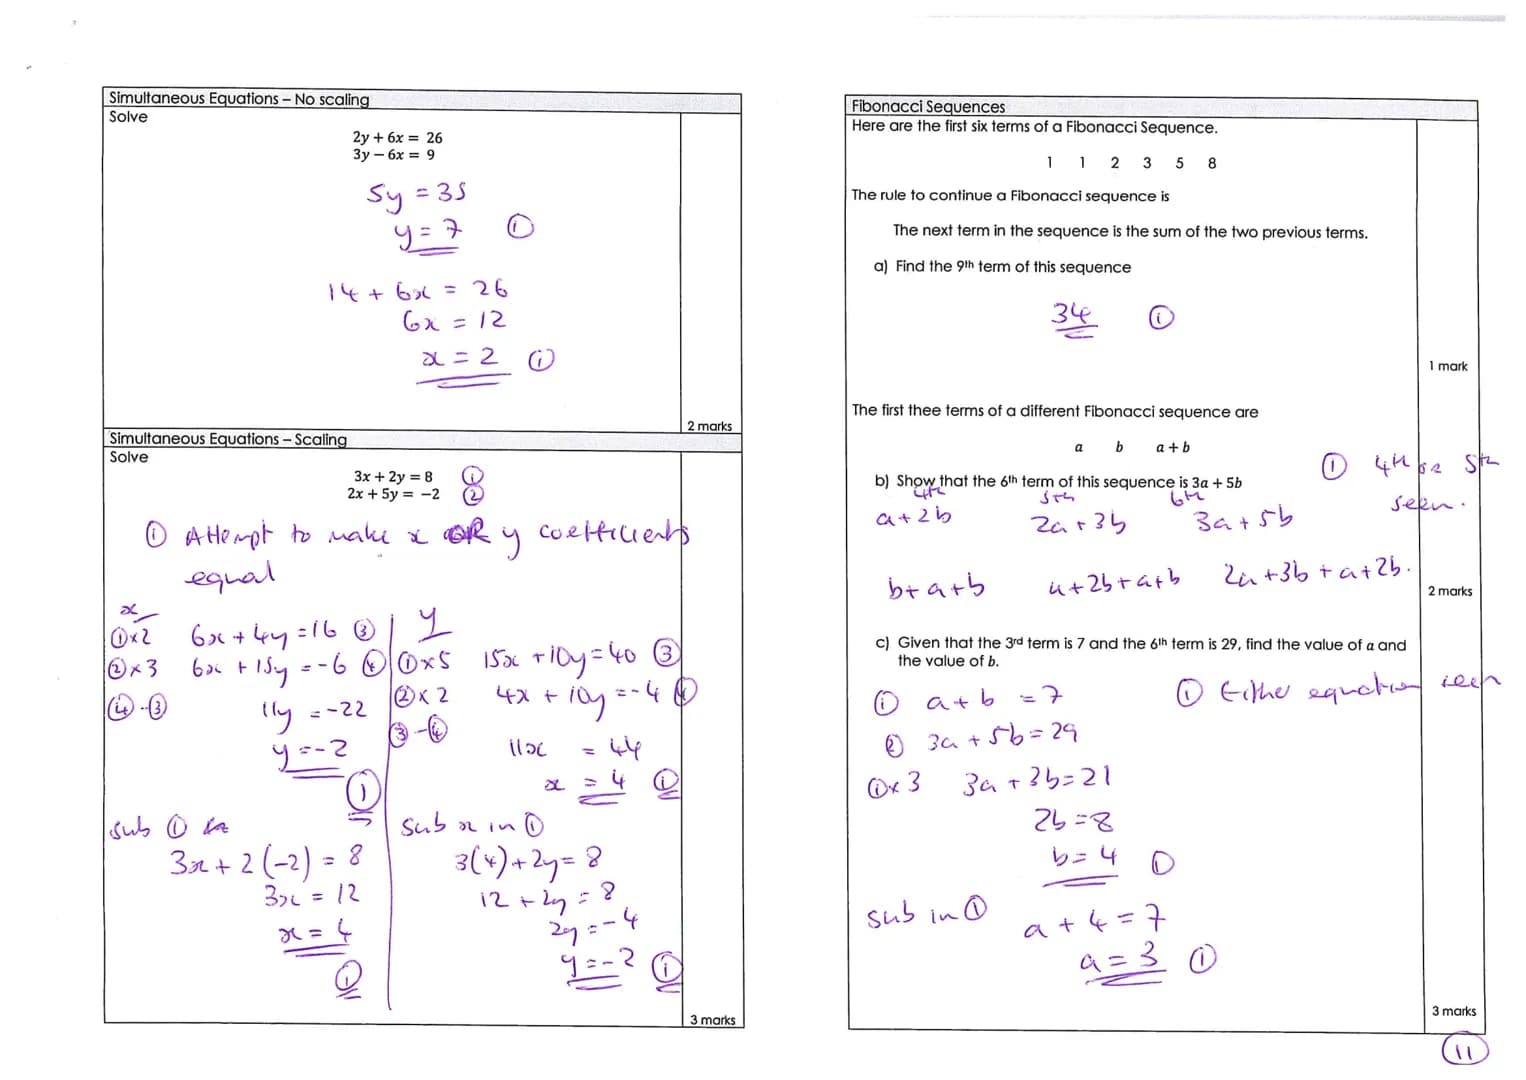 Simultaneous Equations – No scaling
Solve
2y + 6x = 26
3y – 6x = 9
5y = 35
y = 7 ①
14 + 6x = 26
6x = 12
x = 2 ①
2 marks
Simultaneous Equations – Scaling
Solve
3x + 2y = 8 ①
2x + 5y = –2 ②
① Attempt to make x OR y coefficients
equal
x
①x2 6x + 4y = 16 ③
②x3 6x + 15y = -6 ④
④-③ 11y = -22
y = -2
①
sub ① in
3x + 2(-2) = 8
3x = 12
x = 4
①
y
①x5 15x + 10y = 40 ③
②x2 4x + 10y = -4 ④
③-④
11x = 44
x = 4 ①
sub x in ①
3(4) + 2y = 8
12 + 2y = 8
2y = -4
y = -2 ①
3 marks
Fibonacci Sequences
Here are the first six terms of a Fibonacci Sequence.
1 1 2 3 5 8
The rule to continue a Fibonacci sequence is
The next term in the sequence is the sum of the two previous terms.
a) Find the 9th term of this sequence
34 ①
1 mark
The first thee terms of a different Fibonacci sequence are
a b a + b
① 4th or 5th
seen.
b) Show that the 6th term of this sequence is 3a + 5b
4th 5th 6th
a + 2b 2a + 3b 3a + 5b
b + a + b a + 2b + a + b 2a + 3b + a + 2b.
2 marks
c) Given that the 3rd term is 7 and the 6th term is 29, find the value of a and
the value of b.
① a + b = 7 ① Either equation seen
② 3a + 5b = 29
①x3 3a + 3b = 21
2b = 8
b = 4 ①
sub in ① a + 4 = 7
a = 3 ①
3 marks
11